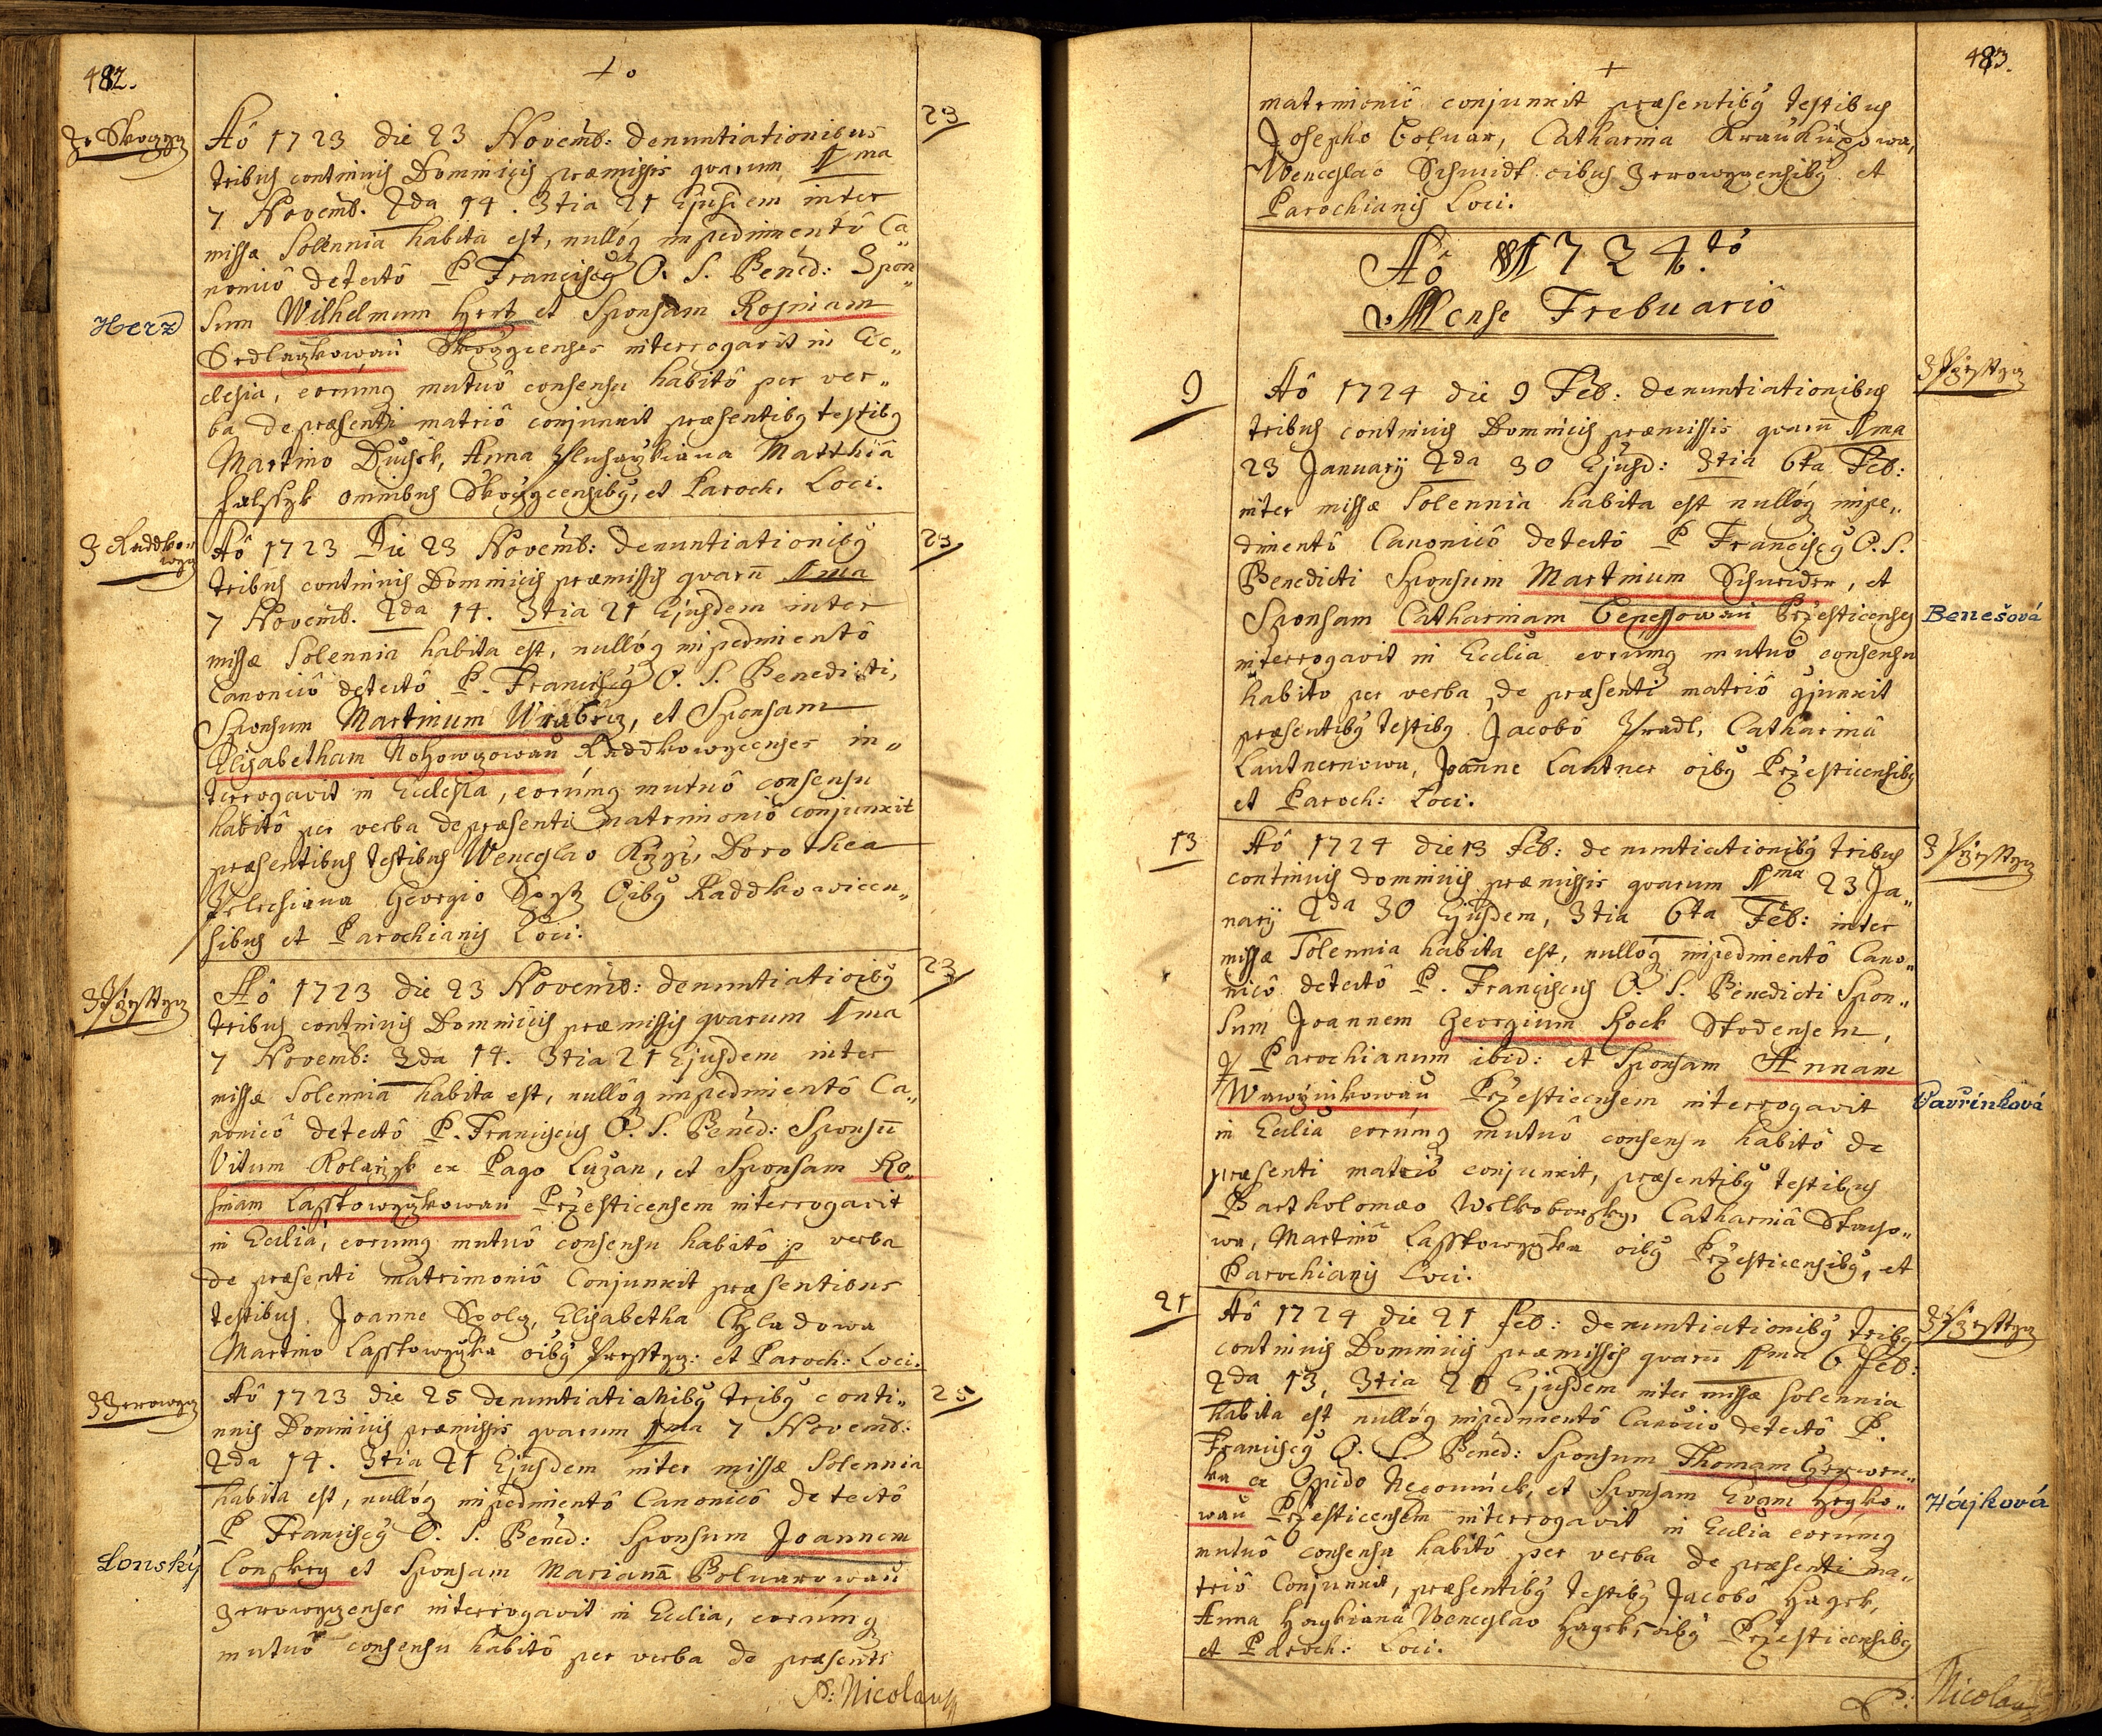 482.
Ze Skoczycz
Aô 1723 die 23 Novemb: denuntiationibus
23
tribus continuis Dominicis præmissis quarum 1ma
7 Novemb. 2da 14. 3tia 21 Ejusdem inter
missæ Solennia habita est, nullóq impedimentô Ca„
nonicô detectô P Franciscq O. S. Bened: Spon„
Herz
sum Wilhelmum Hertz et Sponsam Rosinam
Sedlaczkowau Skoczicenses interrogavit in Ec„
clesia, eorumq mutuô consensu habitô per ver„
ba de præsenti matriô conjunxit præsentibq testibq
Martino Duchek, Anna Matthia
omnibus Skoczicensibq, et Paroch. Loci.
Z Raddko„
wycz
Aô 1723 Die 23 Novemb: denuntiationibq
23
tribus continuis Dominicis præmissis quarū 1ma
7 Novemb. 2da 14. 3tia 21 Ejusdem inter
missæ Solennia habita est, nullóq impedimentô
Canonicô detectô P. Franciscq O. S. Benedicti,
Sponsum Martinum Wrabecz, et Sponsam
Elisabetham Raddkowicenses in„
terrogavit in Ecclesia, eorúmq mutuô consensu
habitô per verba de præsenti matrimoniô conjunxit
præsentibus testibus Wenceslao Dorothea
Georgio Oibq Raddkowicen„
sibus et Parochianis Loci.
Z Przesstycz
Aô 1723 die 23 Novemb: denuntiatioibq
23
tribus continuis Dominicis præmissis quarum 1ma
7 Novemb: 2da 14. 3tia 21 Ejusdem inter
missæ Solennia habita est, nullôq impedimentô Ca„
nonicô detectô P. Franciscus O. S. Bened: Sponsū
Vitum Kolarzyk ex Pago Luzan, et Sponsam Ro„
sinam Lasstowyczkowau Przesticensem interrogavit
in Ecclia, eorumq mutuô consensu habitô p verba
de præsenti matrimoniô Conjunxit præsentibus
testibus Joanne Elisabetha Chladowa
Martino Lasstowyczka oibq Przesstycz: et Paroch: Loci.
Z Zerowycz
Aô 1723 die 25 denuntiationibq tribq conti„
25
nuis Dominicis præmissis quarum 1ma 7 Novemb:
2da 14. 3tia 21 Ejusdem inter missæ Solennia
habita est, nullóq impedimentô Canonicô detectô
P Franciscq O. S. Bened: Sponsum Joannem
Lonský
Lonskey et Sponsam Marianā Boluarowau
Zerowyczenses interrogavit in Ecclia, eorúmq
mutuô consensu habitô per verba de præsenti
P: Nicolaus
483.
matrimoniô conjunxit præsentibq testibus
Josepho Boluar, Catharina Kraukupowa,
Wenceslao Schmidt oibus Zerowyzensibq et
Parochianis Loci.
Aô 1724.tô
Mense Frebuariô
9
Z Przesstycz
Aô 1724 die 9 Feb: denuntiationibus
tribus continuis Dominicis præmissis quarū 1ma
23 Januarij 2da 30 Ejusd: 3tia 6ta Feb:
inter missæ Solennia habita est nullóq impe„
dimentô Canonicô detectô P Franciscq O. S.
Benedicti Sponsum Martinum Schneider, et
Sponsam Catharinam Benessowau Przesticenses
Benešová
interrogavit in Ecclia eorumq mutuô consensu
habito per verba de præsenti matriô cjunxit
præsentibq testibq Jacobô Hradl, Catharinâ
Lautnernowa, Joanne Lautner oibq Przesticensibq
et Paroch: Loci.
13
Z Przesstycz
Aô 1724 die 13 Feb: denuntiationibq tribus
continuis dominicis præmissis quarum 1ma 23 Ja„
narij 2da 30 Ejusdem, 3tia 6ta Feb: inter
missæ Solennia habita est, nullóq impedimentô Cano„
nicô detectô P. Franciscus O. S. Benedicti Spon„
sum Joannem Georgium Kock Stodensem,
& Parochianum ibid: et Sponsam Annam
Wawržinkowau Przesticensem interrogavit
Vavřínková
in Ecclia eorúmq mutuô consensu habitô de
præsenti matriô conjunxit, præsentibq testibus
Bartholomæo Welkoborsky, Catharinâ
wa, Martinô Lasstowyczka oibq Przesticensibq, et
Parochianis Loci.
21
Z Przesstycz
Aô 1724 die 21 feb: denuntiationibq tribq
continuis Dominicis præmissis quarū 1ma 6 feb:
2da 13, 3tia 20 Ejusdem inter missæ solennia
habita est nullóq impedimentô Canoîcô detectô P.
Franciscq O. S. Bened: Sponsum Thomam Czerwen„
ka ex Opido Nepomúck, et Sponsam Evam Heyko„
Hájková
wau Przesticensem interrogavit in Ecclia eorumq
mutuô consensu habitô per verba de præsenti ma„
triô Conjunxit, præsentibq testibq Jacobô Hagek,
Anna Haykiana Wenceslao Hagek, oibq Przesticensibq
et Paroch: Loci.
P: Nicolaus